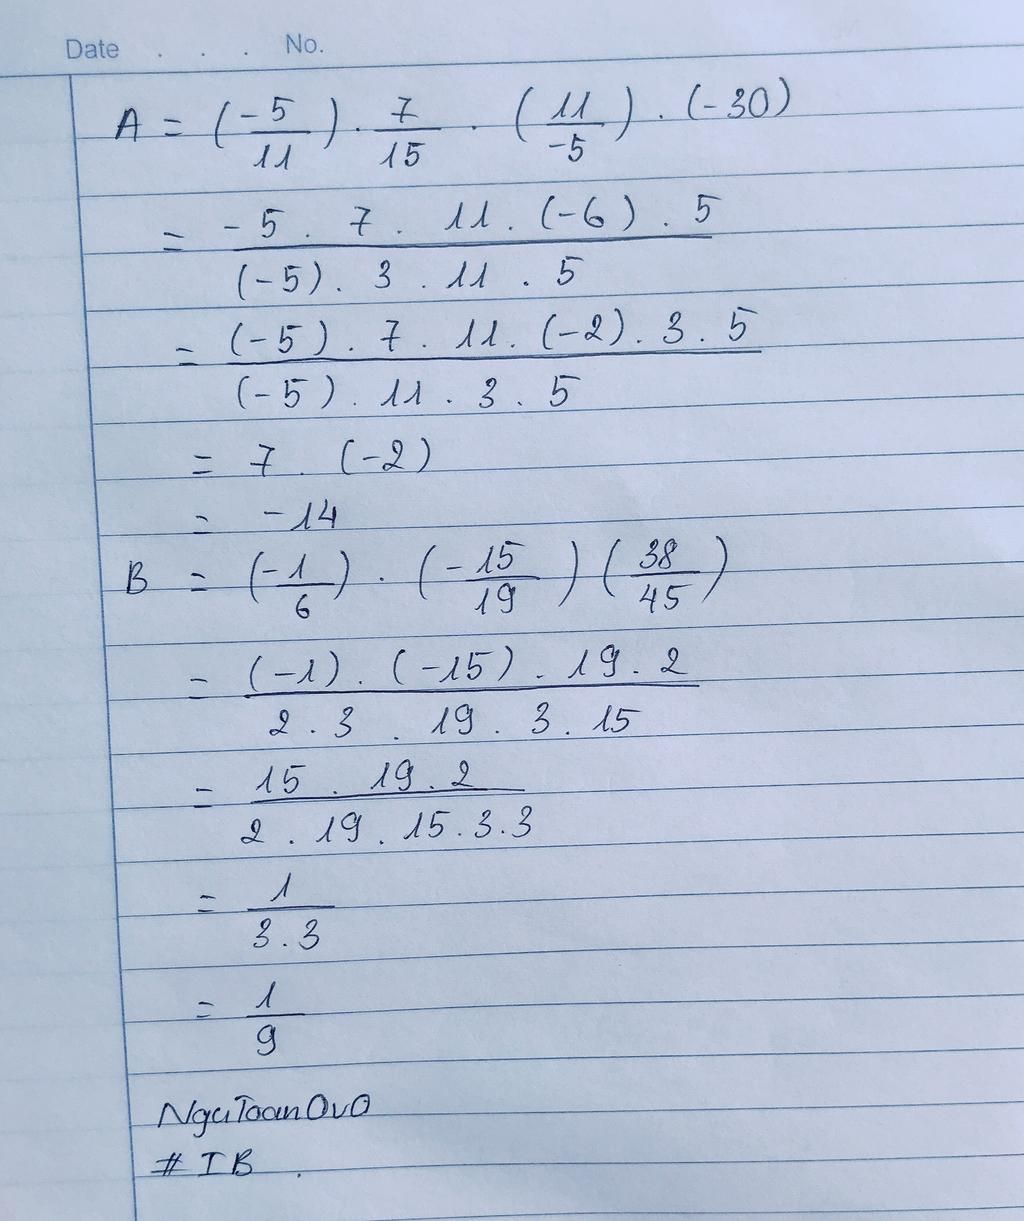 Date . . . No.
A = (-5/11) . 7/15 . (11/-5) . (-30)
= -5 . 7 . 11 . (-6) . 5 / (-5) . 3 . 11 . 5
= (-5) . 7 . 11 . (-2) . 3 . 5 / (-5) . 11 . 3 . 5
= 7 . (-2)
= -14
B = (-1/6) . (-15/19) (38/45)
= (-1) . (-15) . 19 . 2 / 2 . 3 . 19 . 3 . 15
= 15 . 19 . 2 / 2 . 19 . 15 . 3 . 3
= 1 / 3 . 3
= 1/9
NguToanOvO
# IB .